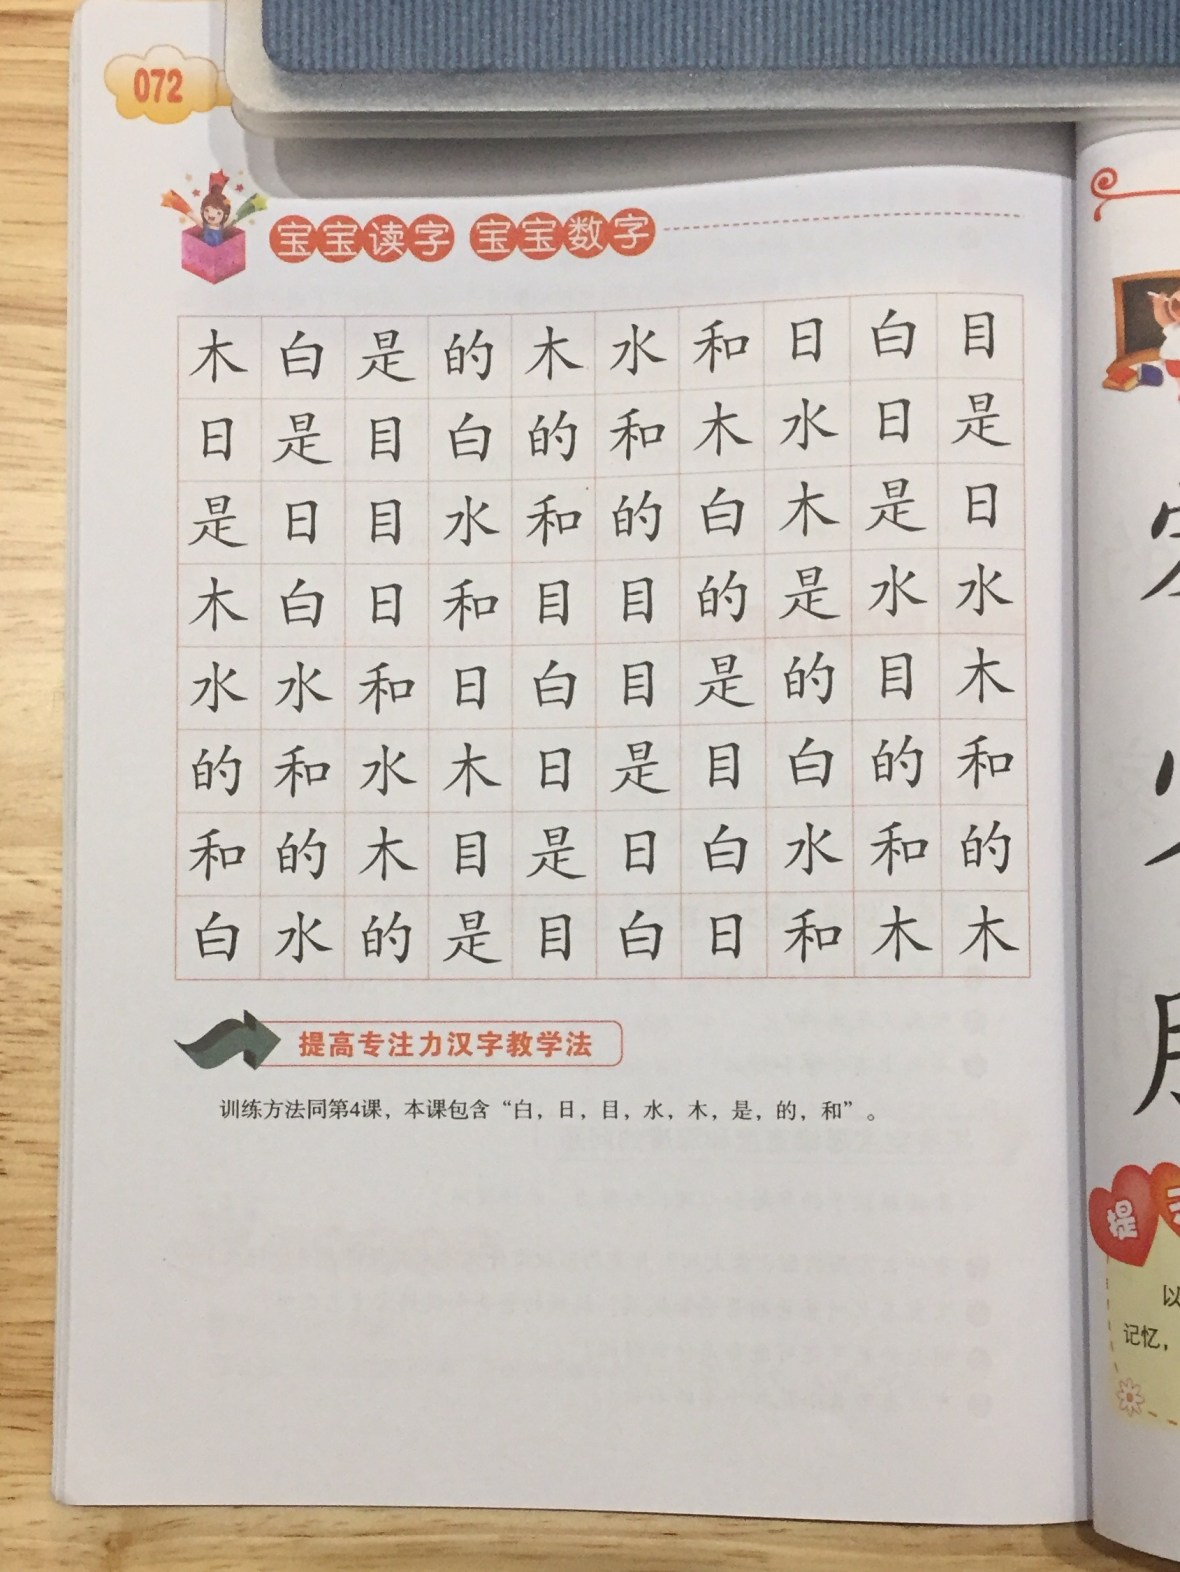 072
宝宝读字 宝宝数字
木白是的木水和日白目
日是目白的和木水日是
是日目水和的白木是日
木白日和目目的是水水
水水和日白目是的目木
的和水木日是目白的和
和的木目是日白水和的
白水的是目白日和木木
提高专注力汉字教学法
训练方法同第4课，本课包含“白，日，目，水，木，是，的，和”。
提
以
记忆，